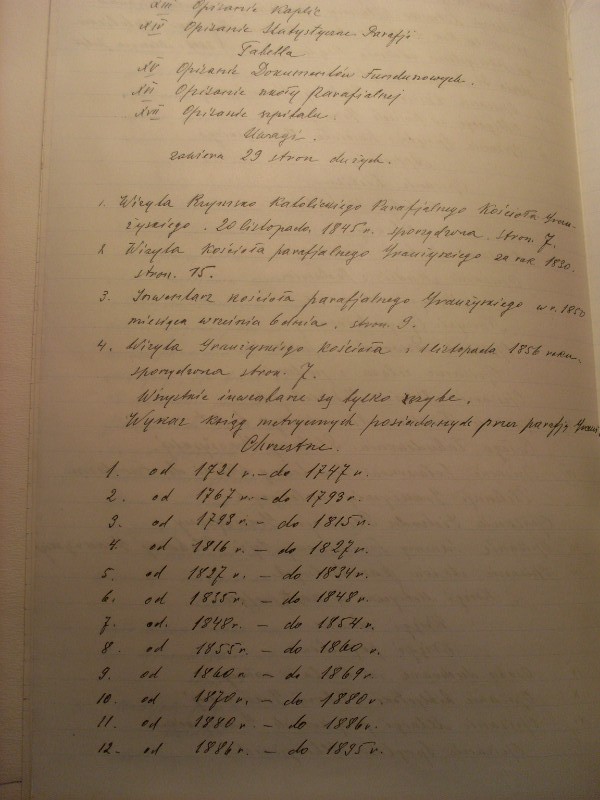 XIII Opisanie Kaplic
XIV Opisanie Statystyczne Parafji
Tabella
XV Opisanie Dokumentów Fundunowych.
XVI Opisanie szkoły parafjalnej
XVII Opisanie szpitalu.
Uwagi.
zawiera 29 stron dużych.
1. Wizyta Rzymsko Katolickiego Parafjalnego Kościoła Gran-
żyskiego. 20 listopada 1845 r. sporządzona. stron. 7.
2. Wizyta Kościoła parafjalnego Granżyskiego za rok 1830.
stron. 15.
3. Inwentarz kościoła parafjalnego Granżyskiego w r. 1850
miesiąca września 6 dnia. stron. 9.
4. Wizyta Granżyskiego Kościoła 1 listopada 1856 roku,
sporządzona stron. 7.
Wszystkie inwentarze są tylko
Wykaz ksiąg metrycznych posiadanych przez parafję
Chrzestne.
1. od 1721 r. – do 1747 r.
2. od 1767 r. – do 1793 r.
3. od 1798 r. – do 1815 r.
4. od 1816 r. – do 1827 r.
5. od 1827 r. – do 1834 r.
6. od 1835 r. – do 1848 r.
7. od. 1848 r. – do 1854 r.
8. od 1855 r. – do 1860 r.
9. od 1860 r. – do 1869 r.
10. od 1870 r. – do 1880 r.
11. od 1880 r. – do 1886 r.
12. od 1886 r. – do 1895 r.